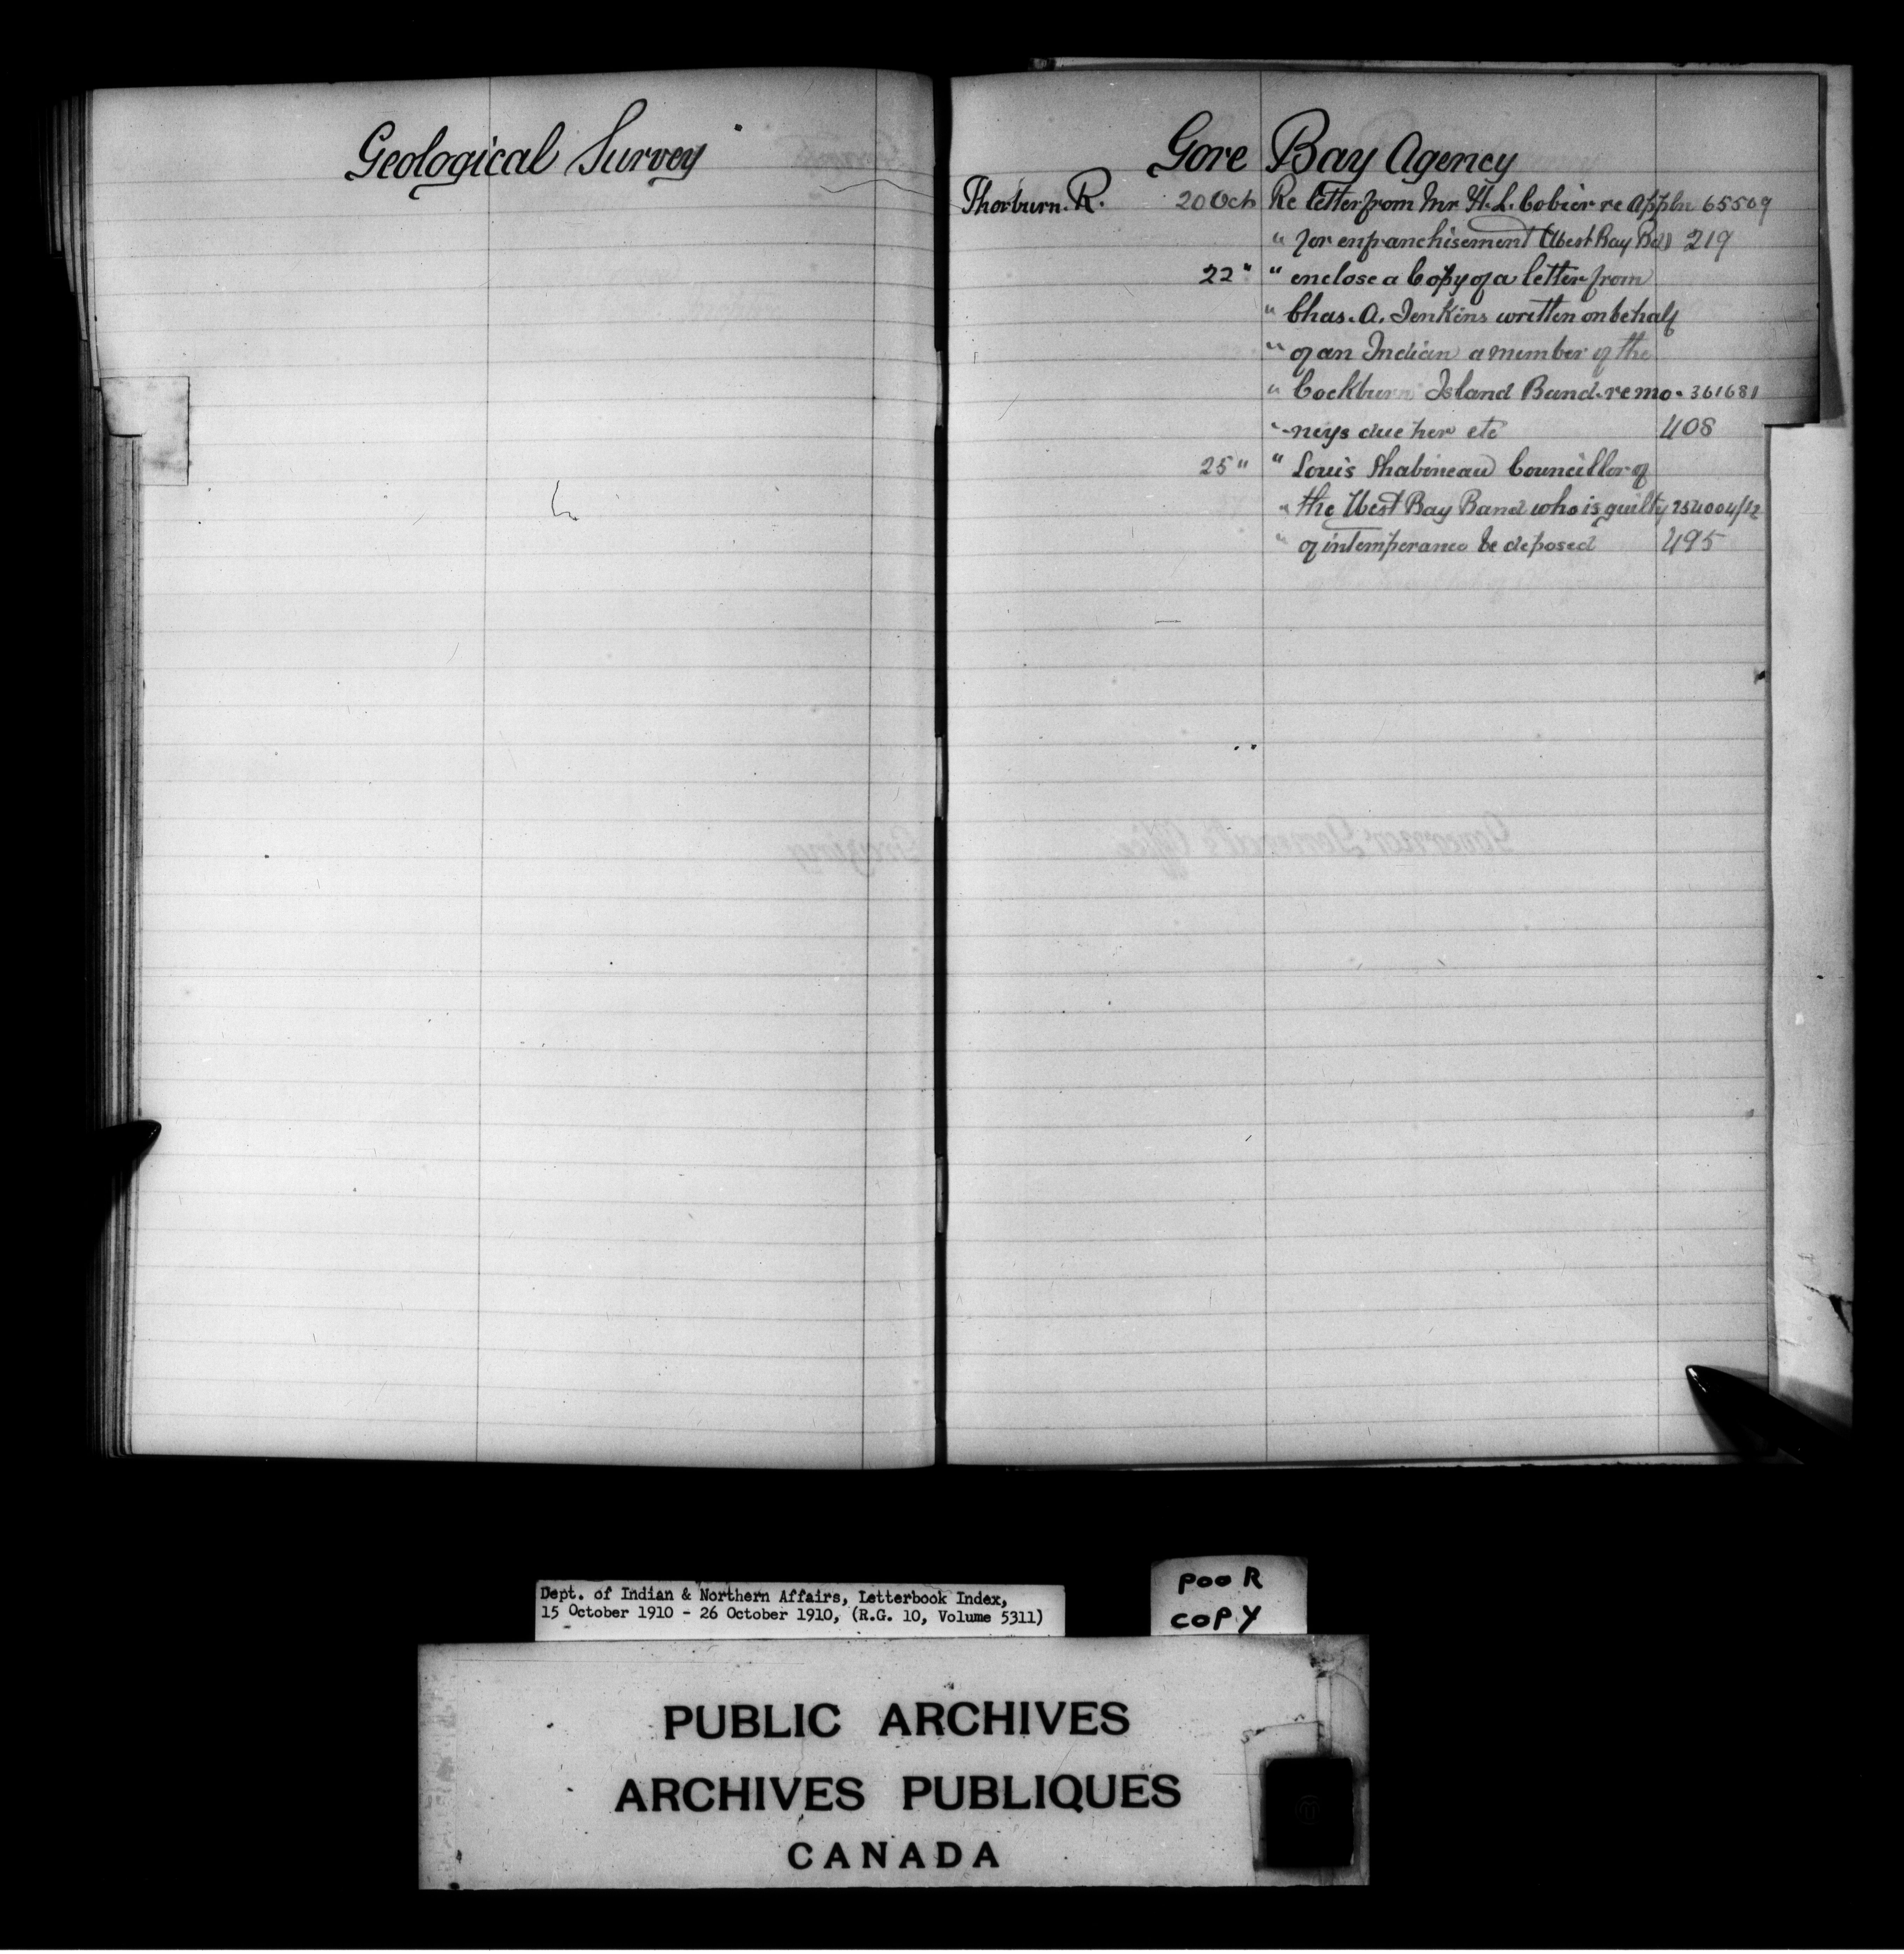 Geological Survey
Gore Bay Agency
Thorburn. R. 20 Oct Re letter from Mr H. L. Cobier re Appln 65509
" for enfranchisement (West Bay Bd) 219
22 " " enclose a Copy of a letter from
" Chas. A. Jenkins written on behalf
" of an Indian a member of the
" Cockburn Island Band. re mo- 361681
" -neys due her etc 408
25 " " Louis Shabineau Councillor of
" the West Bay Band who is guilty 254004/12
" of intemperance be deposed 495
Dept. of Indian & Northern Affairs, Letterbook Index,
15 October 1910 - 26 October 1910, (R.G. 10, Volume 5311)
POOR
COPY
PUBLIC ARCHIVES
ARCHIVES PUBLIQUES
CANADA